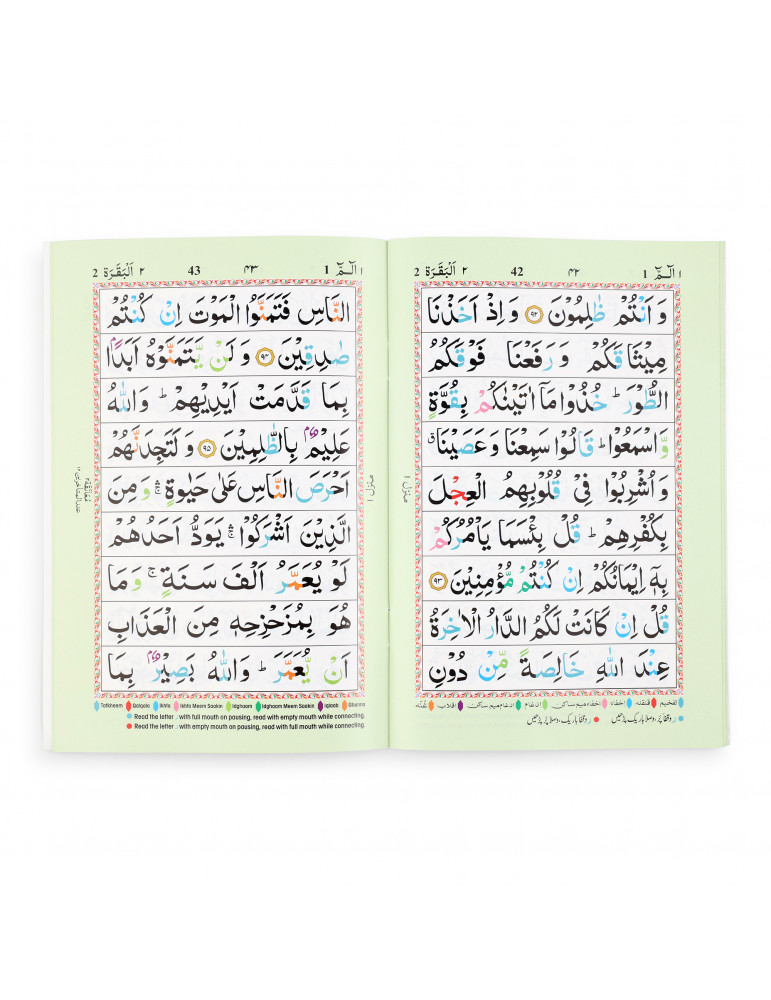 ١ الٓمّٓ 1 ۴۲ 42 ٢ اَلْبَقَرَة 2
وَ اَنْتُمْ ظٰلِمُوْنَ ۹۲ وَ اِذْ اَخَذْنَا
مِيْثَاقَكُمْ وَ رَفَعْنَا فَوْقَكُمُ
الطُّوْرَ ؕ خُذُوْا مَاۤ اٰتَيْنٰكُمْ بِقُوَّةٍ
وَّ اسْمَعُوْا ؕ قَالُوْا سَمِعْنَا وَ عَصَيْنَا ۗ
وَ اُشْرِبُوْا فِيْ قُلُوْبِهِمُ الْعِجْلَ
بِكُفْرِهِمْ ؕ قُلْ بِئْسَمَا يَاْمُرُكُمْ
بِهٖۤ اِيْمَانُكُمْ اِنْ كُنْتُمْ مُّؤْمِنِيْنَ ۹۳
قُلْ اِنْ كَانَتْ لَكُمُ الدَّارُ الْاٰخِرَةُ
عِنْدَ اللّٰهِ خَالِصَةً مِّنْ دُوْنِ
تفخیم قلقلہ اخفاء اخفاء میم ساکن ادغام ادغام میم ساکن اقلاب غنّہ
ر وقفاً پُر، وصلاً باریک پڑھیں ر وقفاً باریک، وصلاً پُر پڑھیں
منزل ١
١ الٓمّٓ 1 ۴۳ 43 ٢ اَلْبَقَرَة 2
النَّاسِ فَتَمَنَّوُا الْمَوْتَ اِنْ كُنْتُمْ
صٰدِقِيْنَ ۹۴ وَ لَنْ يَّتَمَنَّوْهُ اَبَدًۢا
بِمَا قَدَّمَتْ اَيْدِيْهِمْ ؕ وَ اللّٰهُ
عَلِيْمٌۢ بِالظّٰلِمِيْنَ ۹۵ وَ لَتَجِدَنَّهُمْ
اَحْرَصَ النَّاسِ عَلٰى حَيٰوةٍ ۛۚ وَ مِنَ
الَّذِيْنَ اَشْرَكُوْا ۛۚ يَوَدُّ اَحَدُهُمْ
لَوْ يُعَمَّرُ اَلْفَ سَنَةٍ ۚ وَ مَا
هُوَ بِمُزَحْزِحِهٖ مِنَ الْعَذَابِ
اَنْ يُّعَمَّرَ ؕ وَ اللّٰهُ بَصِيْرٌۢ بِمَا
Tafkheem Qalqala Ikhfa Ikhfa Meem Saakin Idghaam Idghaam Meem Saakin Iqlaab Ghunna
Read the letter ر with full mouth on pausing, read with empty mouth while connecting.
Read the letter ر with empty mouth on pausing, read with full mouth while connecting.
منزل ١